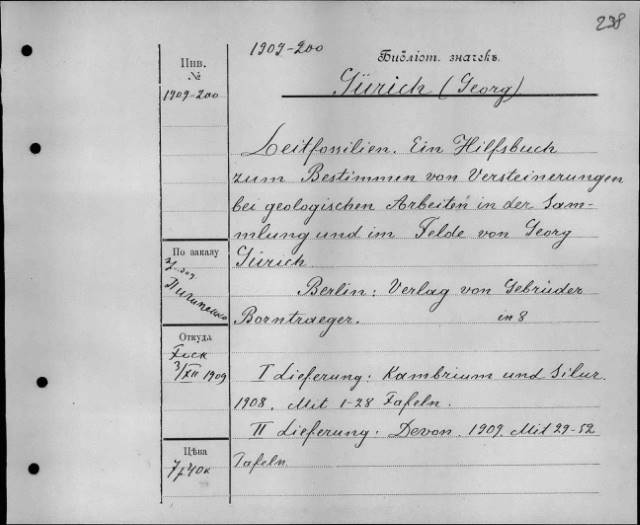 238
1909-200
Инв.
№
Библіот. значекъ.
1909-200
Gürich (Georg)
Leitfossilien. Ein Hilfsbuch
zum Bestimmen von Versteinerungen
bei geologischen Arbeiten in der Sam-
mlung und im Felde von Georg
Gürich
По заказу
Berlin: Verlag von Gebrüder
Borntraeger. in 8
Откуда
3/XII 1909
I Lieferung: Kambrium und Silur.
1908. Mit 1-28 Tafeln.
II Lieferung: Devon. 1909. Mit 29-52
Цѣна
7р40к
Tafeln